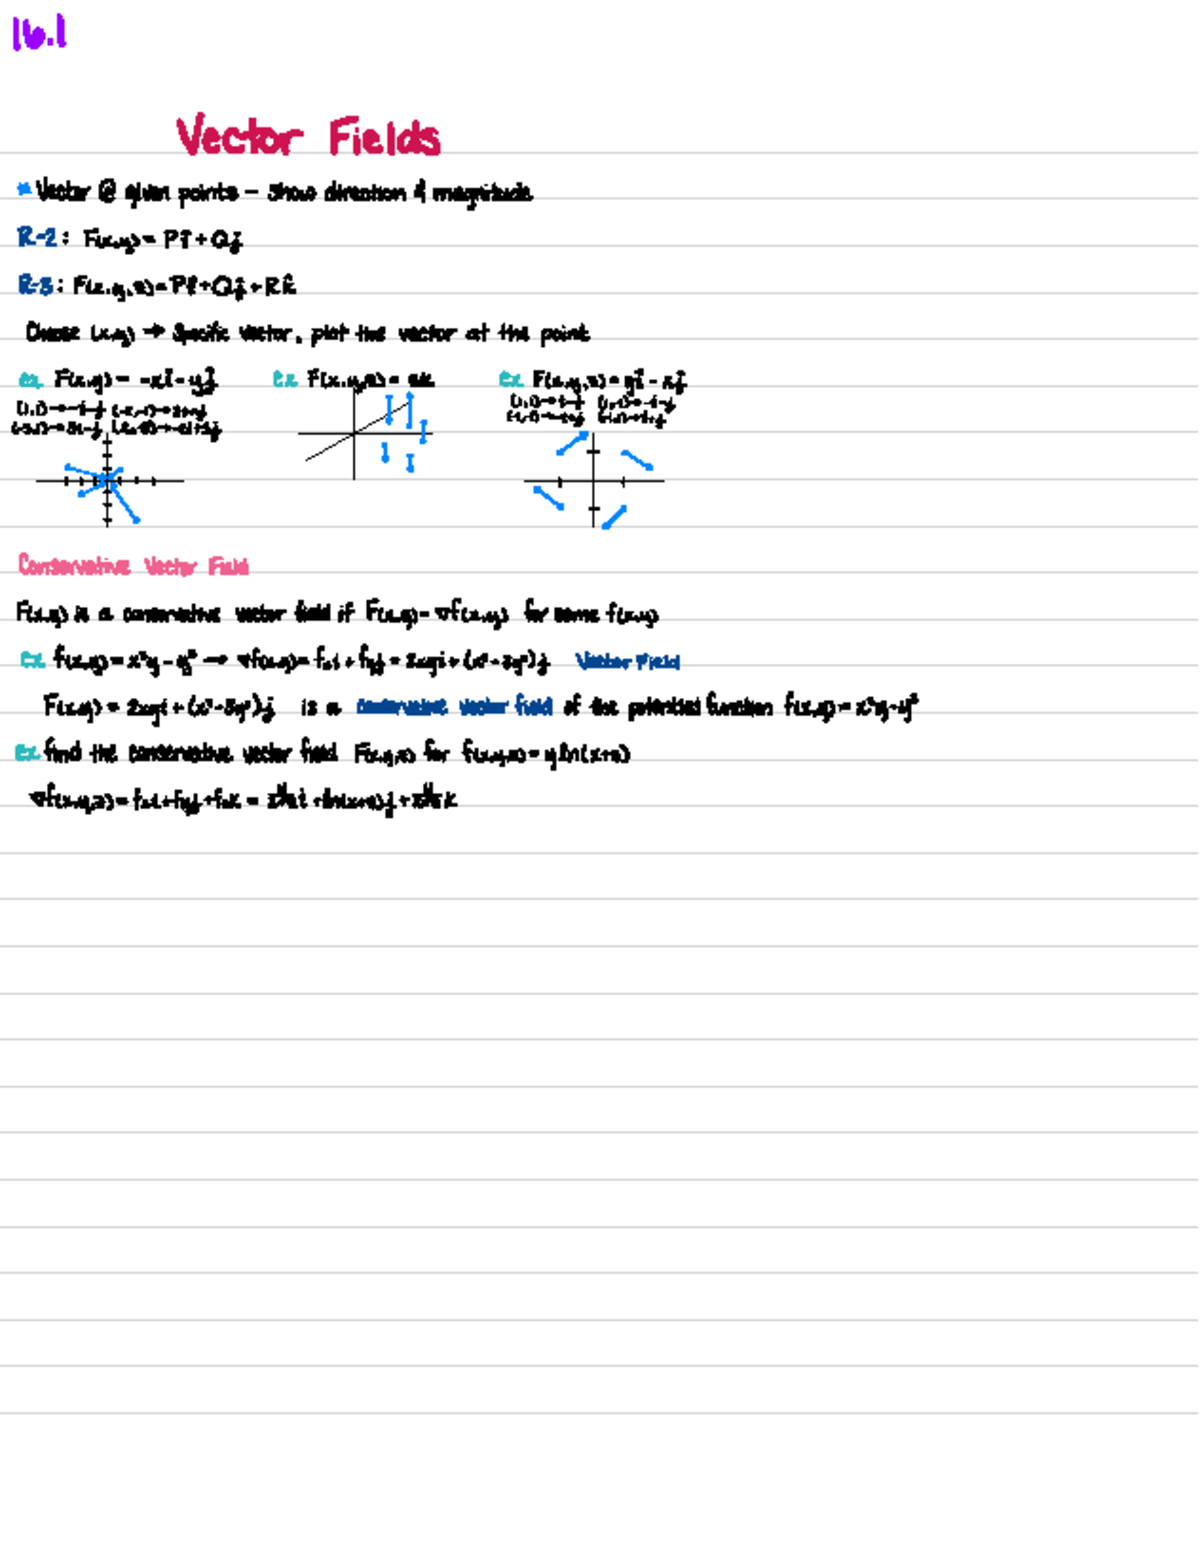 16.1
Vector Fields
* Vector @ given points - show direction & magnitude
R-2: F(x,y) = Pî + Qĵ
R-3: F(x,y,z) = Pî + Qĵ + Rk̂
Choose (x,y) → Specific vector, plot the vector at the point
ex F(x,y) = -xî - yĵ
ex F(x,y,z) = zk
ex F(x,y,z) = yî - xĵ
(1,1) → -i-j
(1,1) → i-j
Conservative Vector Field
F(x,y) is a conservative vector field if F(x,y) = ∇f(x,y) for some f(x,y)
ex f(x,y) = x²y - y³ → ∇f(x,y) = fxi + fyj = 2xyi + (x² - 3y²)j Vector Field
F(x,y) = 2xyi + (x² - 3y²)j is a conservative vector field of the potential function f(x,y) = x²y - y³
ex find the conservative vector field F(x,y,z) for f(x,y,z) = y ln(x+z)
∇f(x,y,z) = fxi + fyj + fzk = i + ln(x+z)j + k